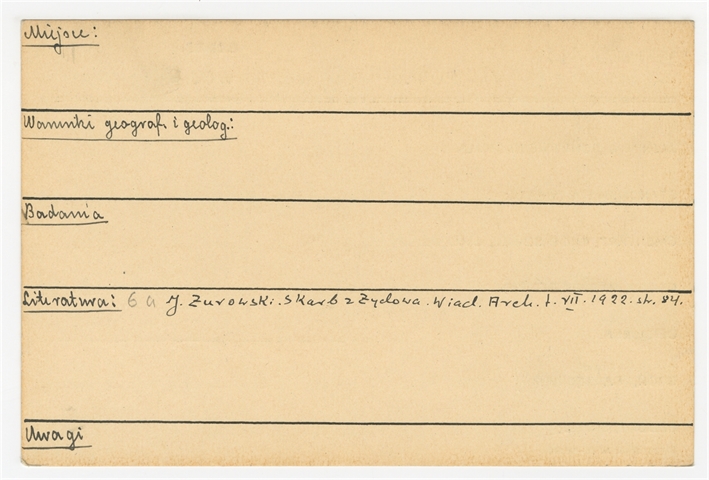 Miejsce:
Warunki geograf. i geolog.:
Badania
Literatura: 6 a J. Żurowski. Skarb z Żydowa. Wiad. Arch. t. VII. 1922. str. 84.
Uwagi